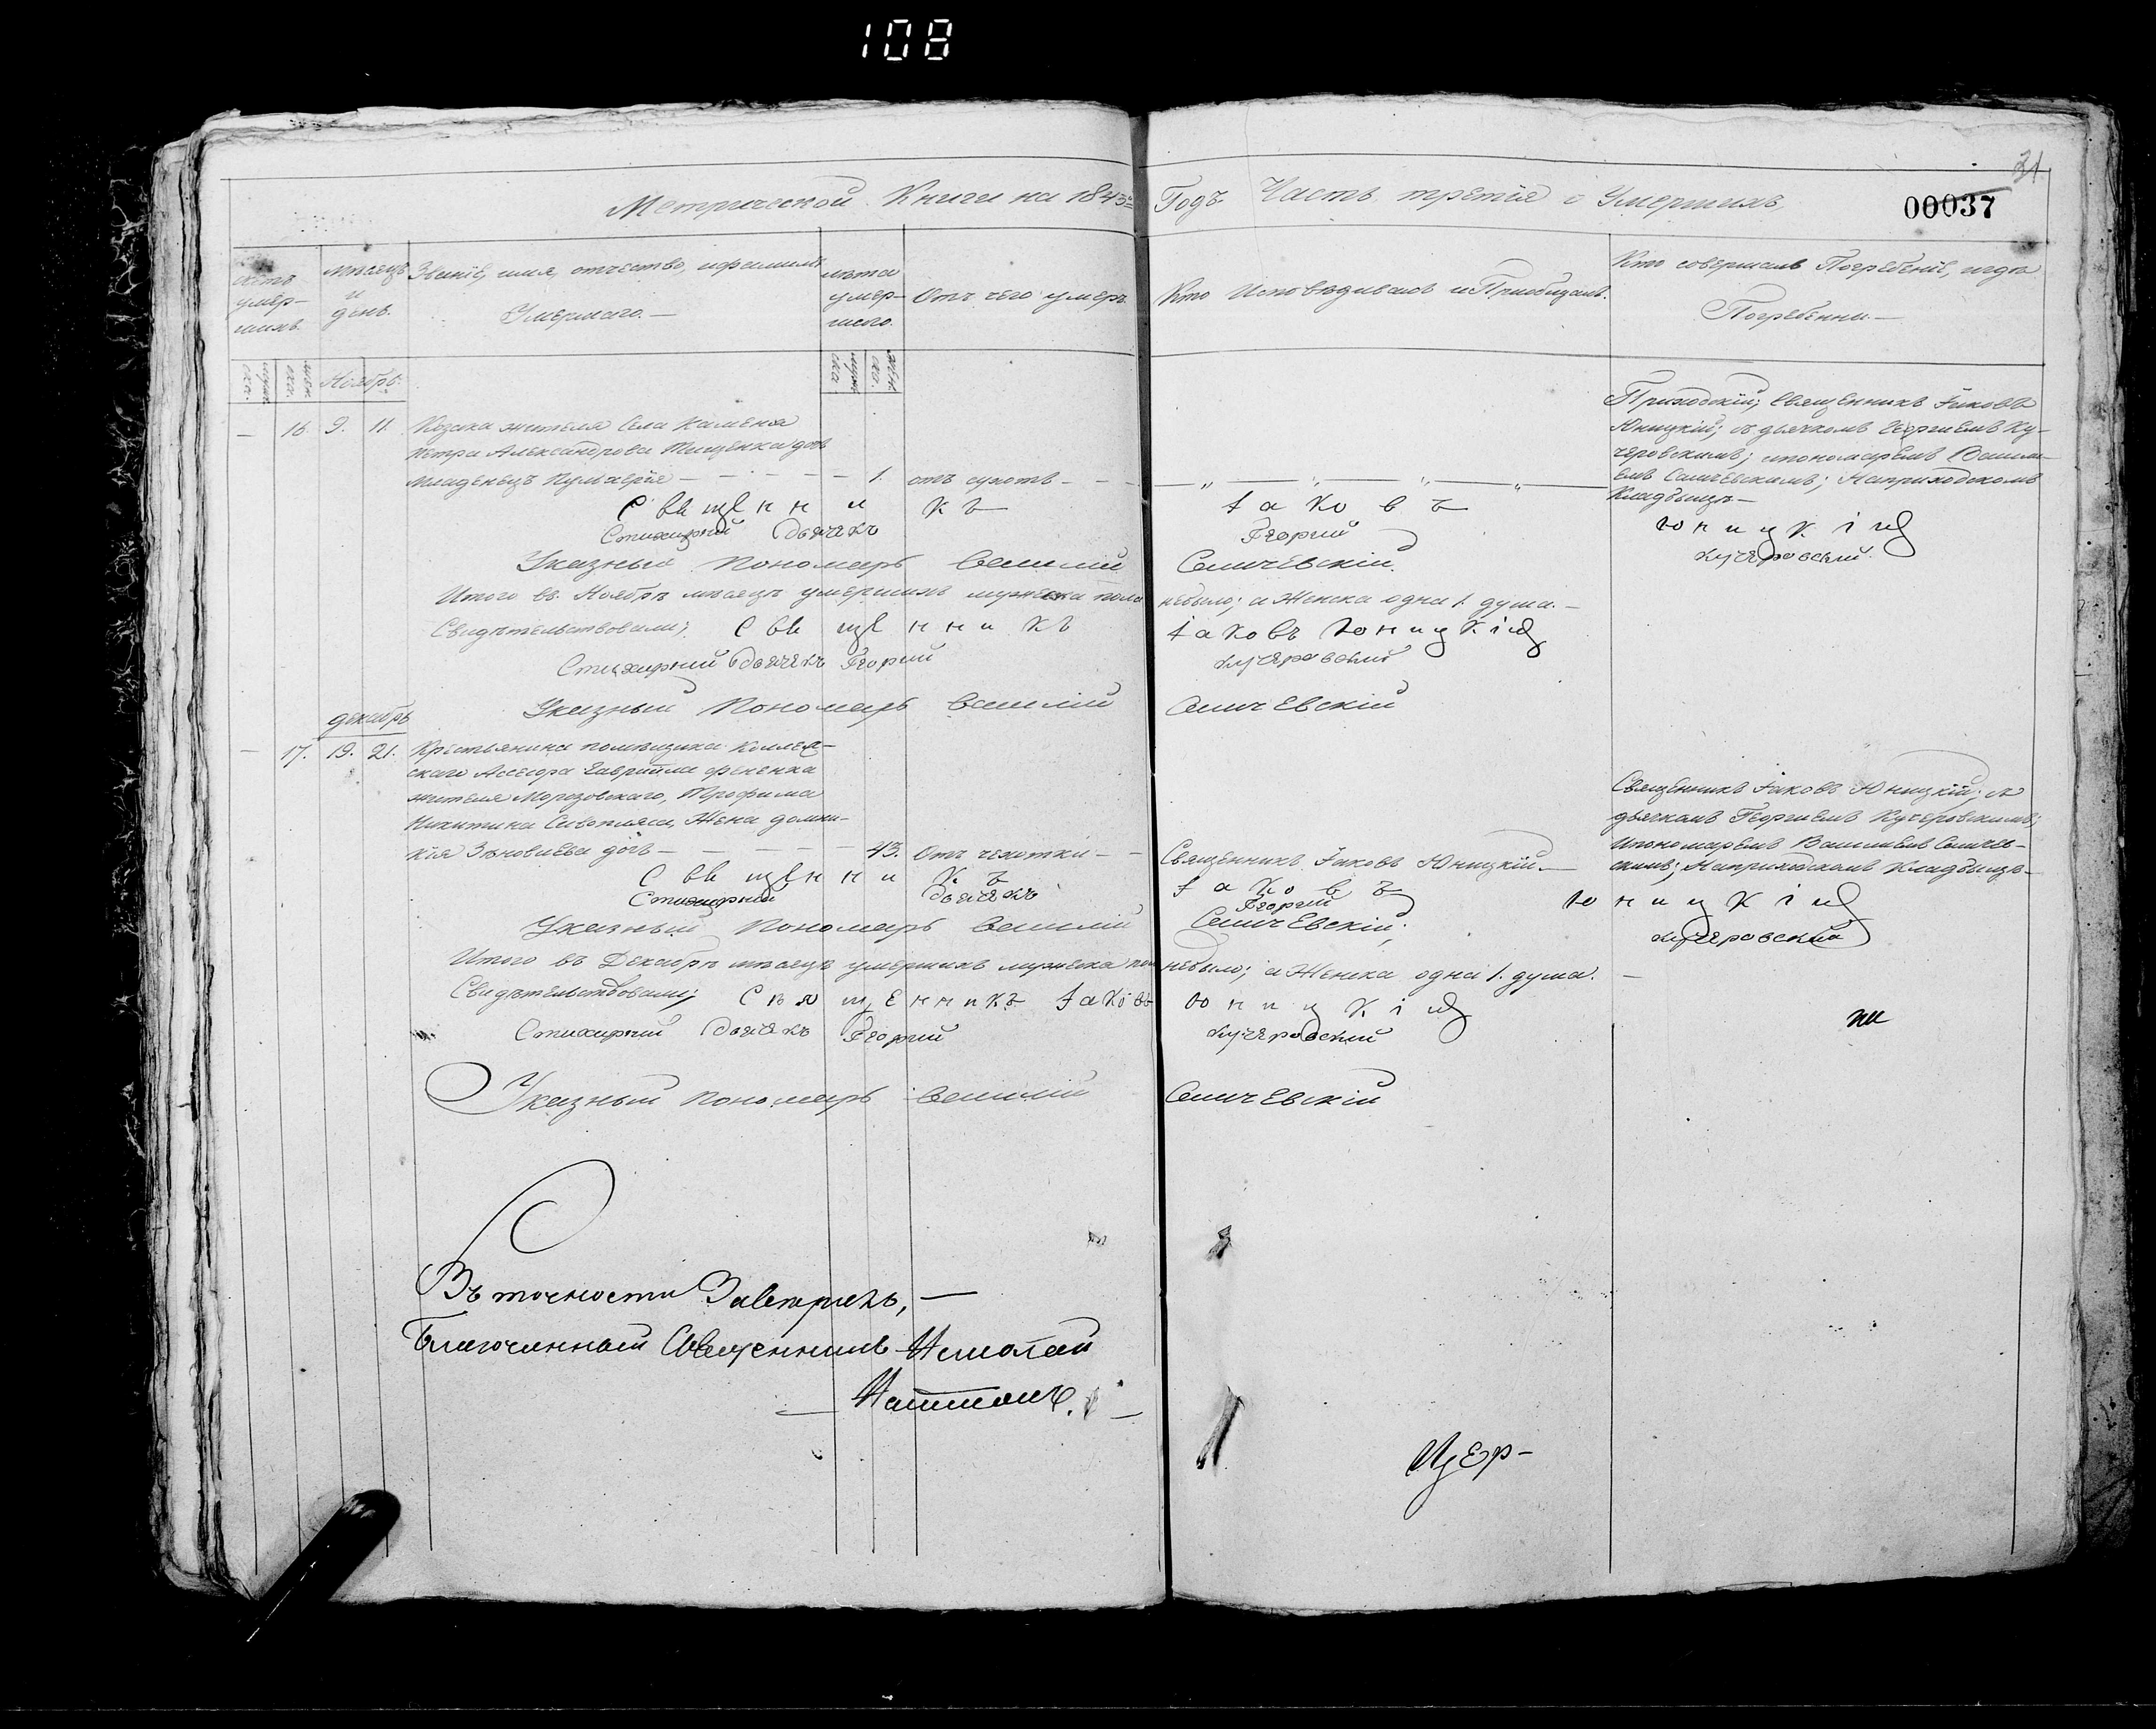 108
31
00037
Метрической Книги на 1843й Годъ Часть третія о Умершихъ,
умер-
шихъ.
мѣсяцъ
и
день.
Званіе, имя, отчество, ифамилія
Умершаго.—
лѣта
умер-
шаго.
Отъ чего умеръ
Кто Исповѣдывалъ иПриобщалъ.
Кто совершалъ Погребеніе, игдѣ
Погребенны.—
Ноябрь.
— 16. 9. 11. Козака жителя Села Каменя
Петра Александрова Тищенка дочь
младенецъ Пулхерія — — — — 1. отъ сухотъ — —
Приходскій; Священникъ Іаковъ
Юницкій; съ дьячкомъ Георгіемъ Ку-
черовскимъ; ипономаремъ Васили-
емъ Самчевскимъ; Наприходскомъ
Кладбищѣ—
Священникъ Іаковъ Юницкій
Стихирный Дьячекъ Георгий Кучеровский.
Указный Пономарь Василий СамчЕвскій.
Итого въ Ноябрѣ мѣсяцѣ умершихъ мужеска пола небыло; а Женска одна 1. душа.—
Свидѣтельствовали; Священникъ Іаковъ Юницкій
Стихирний Дьячекъ Георгий Кучеровский
Указный Пономарь Василій СамчЕвскій
декабрь
— 17. 19. 21. Крестьянина помѣщика Коллеж-
скаго Ассесора Гавриила Фененка
жителя Морозовскаго, Трофима
Никитина Сивопляса, Жена домни-
кія Зѣновиева дочь — — — — 43. Отъ чехотки — —
Священникъ Іаковъ Юницкій.—
Священникъ Іаковъ Юницкій; съ
дьячкомъ Георгіемъ Кучеровскимъ;
ипономаремъ Василіемъ Самчев-
скимъ; Наприходскомъ Кладбищѣ—
Священникъ Іаковъ Юницкій
Стихирний Дьячекъ Георгий Кучеровский
Указный Пономарь Василий СамчЕвскій;
Итого въ Декабрѣ мѣсяцѣ умершихъ мужеска пола небыло; а Женска одна 1. душа. —
Свидѣтельствовали; Священникъ Іаковъ Юницкій
Стихирний Дьячекъ Георгий Кучеровский
Указный Пономарь Василій СамчЕвскій
Въ точности Завѣрилъ, —
Благочинный Священникъ Николай
Цер-